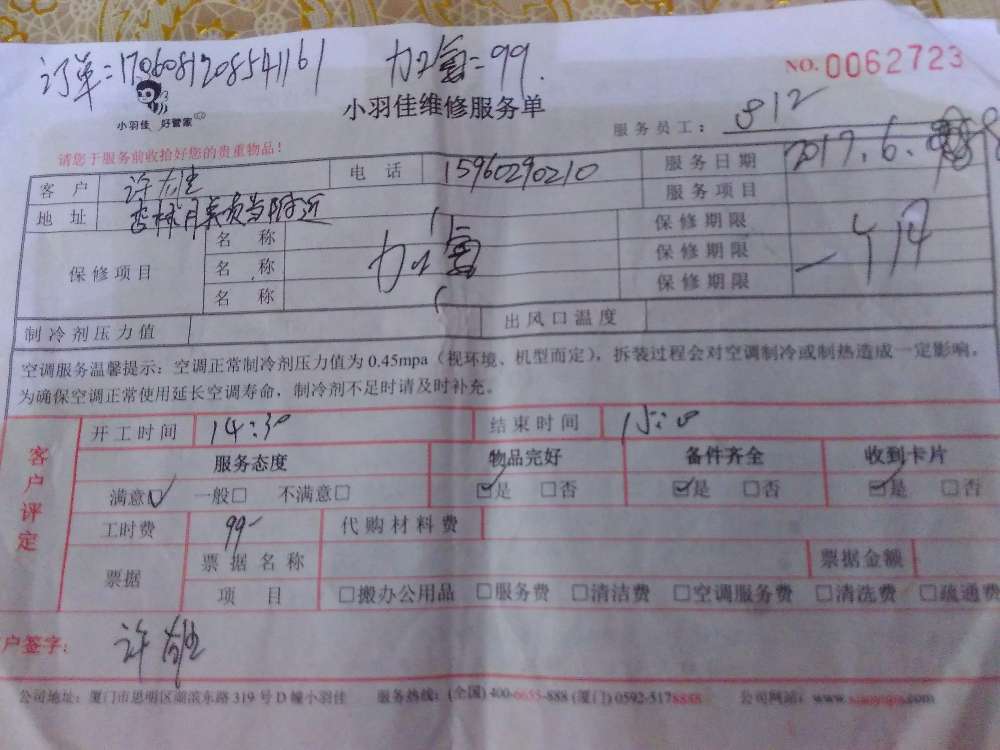 订单:1706081208541161 加氟=99.
NO. 0062723
小羽佳 好管家
小羽佳维修服务单
服务员工: 812
请您于服务前收拾好您的贵重物品!
客 户 许先生 电 话 15960290210 服务日期 2017.6.
服务项目
地 址 杏林月美 附近
保修项目 名 称 加氟 保修期限
名 称 保修期限
名 称 保修期限
制冷剂压力值 出风口温度
空调服务温馨提示:空调正常制冷剂压力值为 0.45mpa(视环境、机型而定),拆装过程会对空调制冷或制热造成一定影响。
为确保空调正常使用延长空调寿命,制冷剂不足时请及时补充。
客户评定
开工时间 14:30 结束时间 15:0
服务态度 物品完好 备件齐全 收到卡片
满意☑ 一般□ 不满意□ ☑是 □否 ☑是 □否 ☑是 □否
工时费 99- 代购材料费
票据 票据名称 票据金额
项 目 □搬办公用品 □服务费 □清洁费 □空调服务费 □清洗费 □疏通费
户签字: 许雄
公司地址:厦门市思明区湖滨东路 319 号 D 幢小羽佳 服务热线:(全国) 400-6655-888 (厦门) 0592-5178888 公司网站:www.xiaoyujia.com